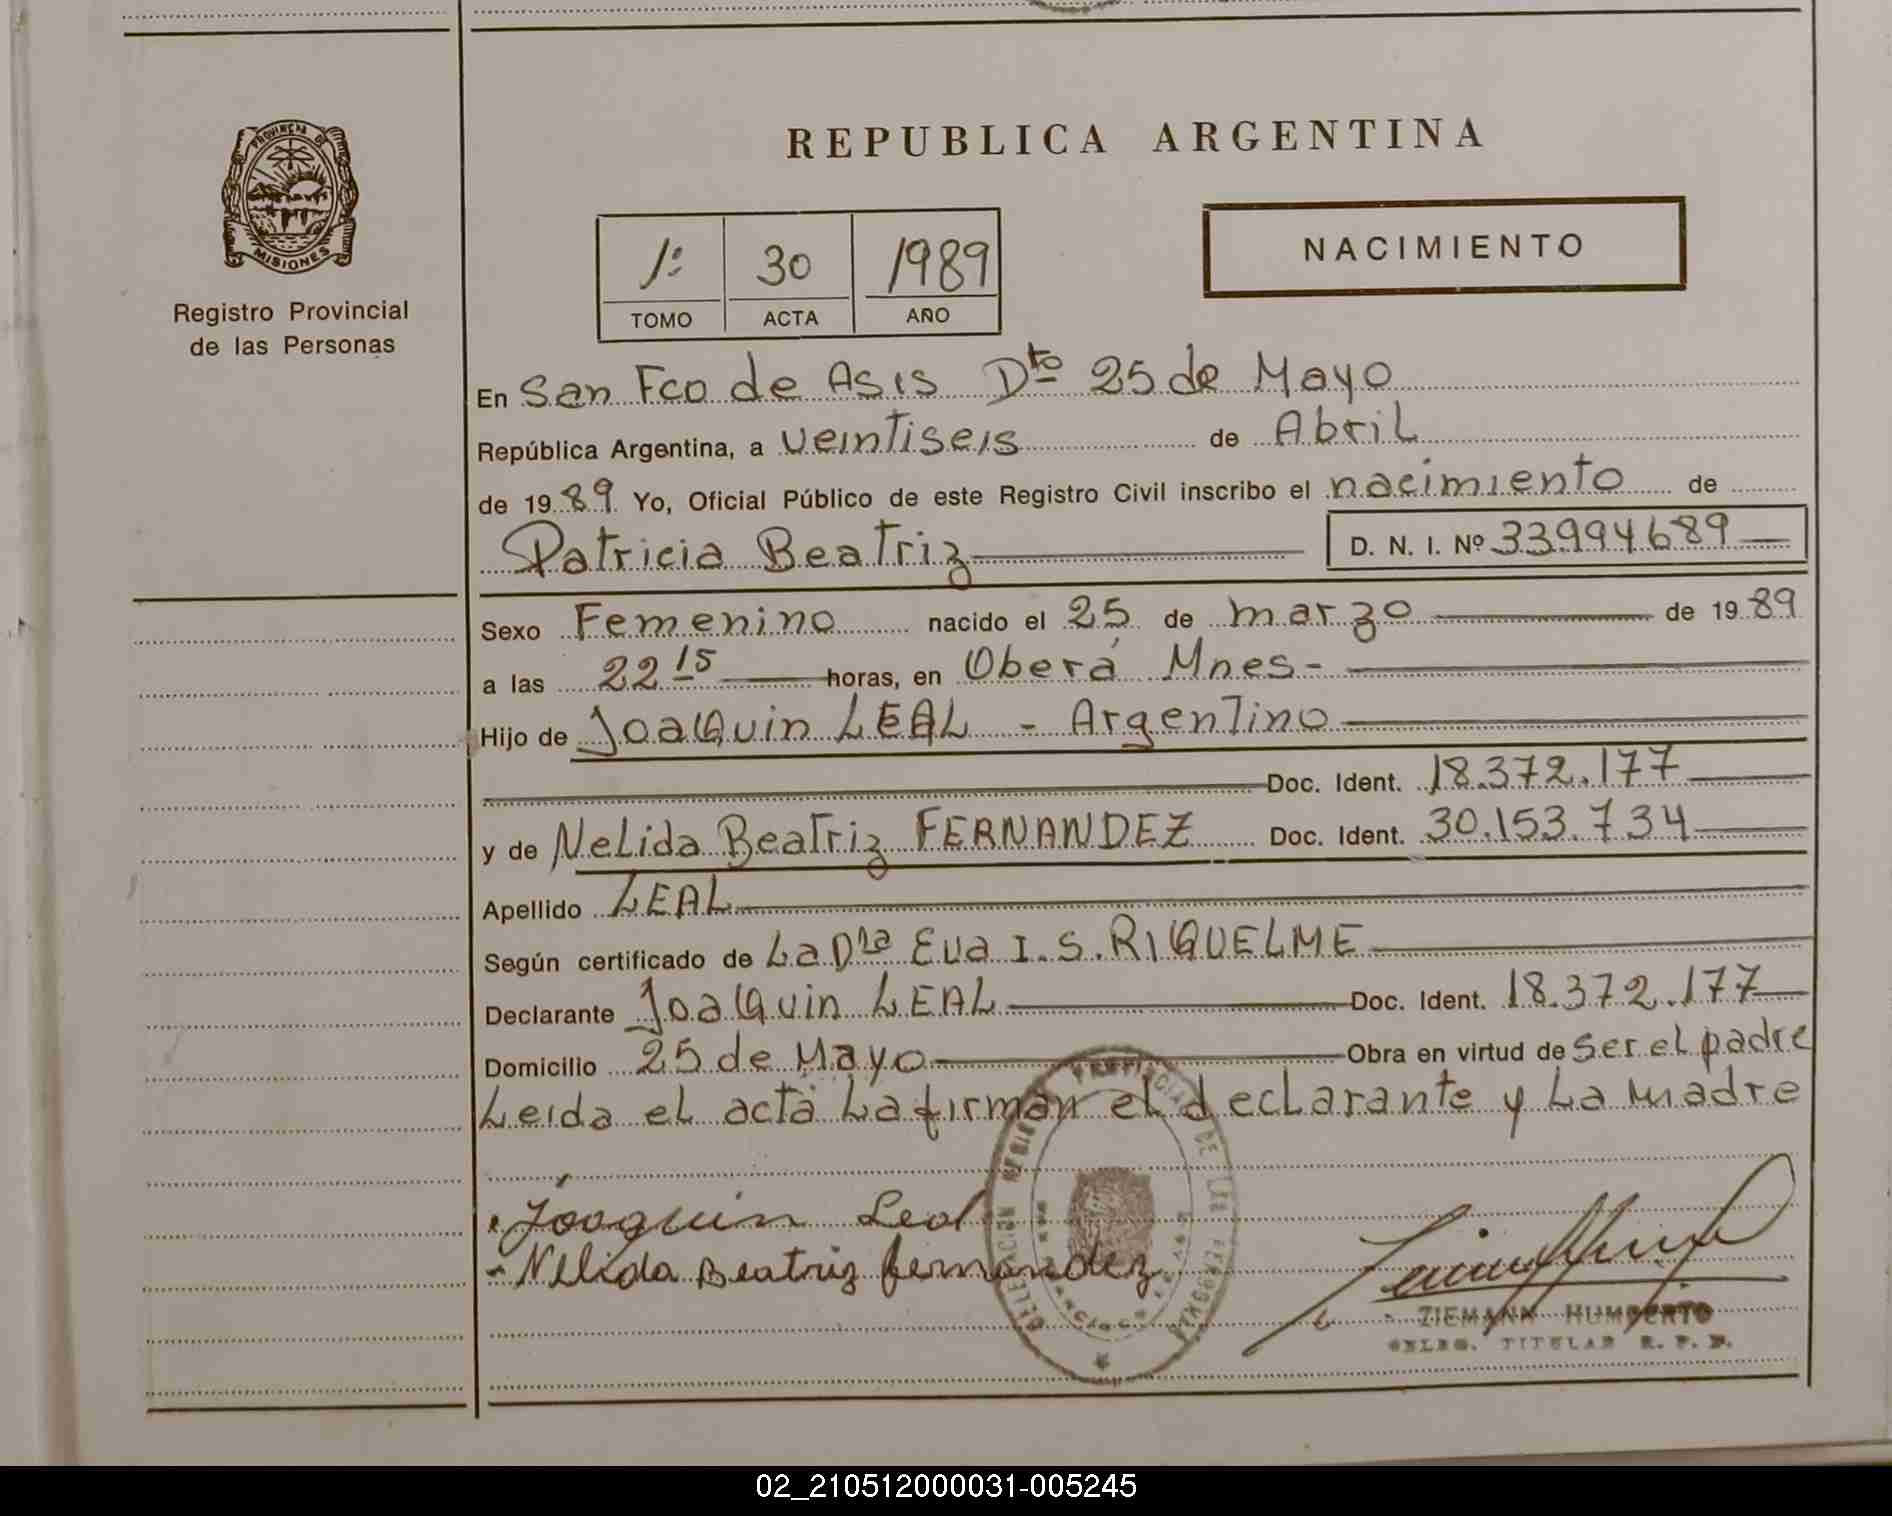 PROVINCIA DE
MISIONES
Registro Provincial
de las Personas
REPUBLICA ARGENTINA
NACIMIENTO
1º 30 1989
TOMO ACTA AÑO
En San Fco de Asis Dto 25 de Mayo
República Argentina, a veintiseis de Abril
de 1989 Yo, Oficial Público de este Registro Civil inscribo el nacimiento de
Patricia Beatriz D. N. I. Nº 33994689
Sexo Femenino nacido el 25 de marzo de 1989
a las 22 15 horas, en Oberá Mnes-
Hijo de Joaquin LEAL - Argentino
Doc. Ident. 18.372.177
y de Nelida Beatriz FERNANDEZ Doc. Ident. 30.153.734
Apellido LEAL
Según certificado de La Dra Eva I. S. RIQUELME
Declarante Joaquin LEAL Doc. Ident. 18.372.177
Domicilio 25 de Mayo Obra en virtud de ser el padre
Leida el acta La firman el declarante y La madre
Joaquin Leal
- Nelida Beatriz fernandez
ZIEMANN HUMBERTO
DELEG. TITULAR R. P. P.
02_210512000031-005245